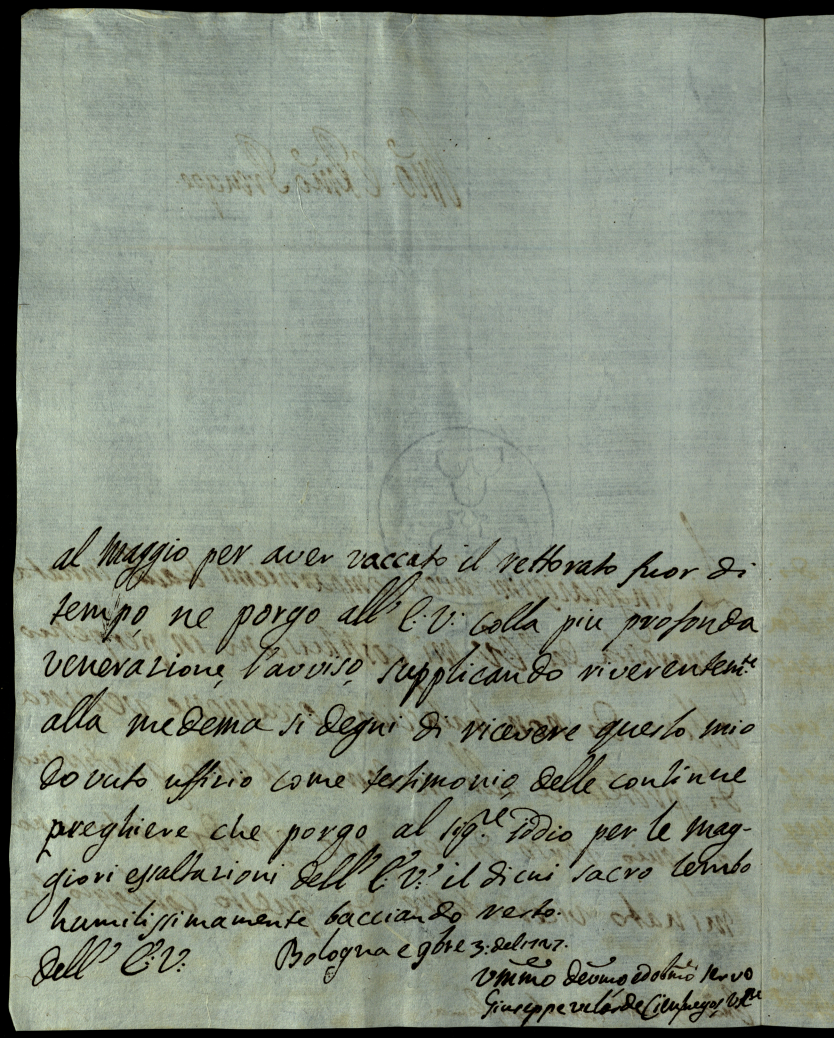 al Maggio per aver vaccato il rettorato fuor di
tempo, ne porgo all' E: V: colla piu profonda
venerazione, l'avviso, supplicando riverentem.te
alla medema si degni di ricevere questo mio
dovuto uffizio come testimonio, delle continue
preghiere che porgo al sig.re Iddio per le mag-
giori essaltazioni dell' E: V: il di cui sacro lembo
humilissimamente bacciando resto.
dell' E: V: Bologna e 9bre 3: del 1727.
Vmmo devmo ed obmo servo
Giuseppe de Cienfuegos